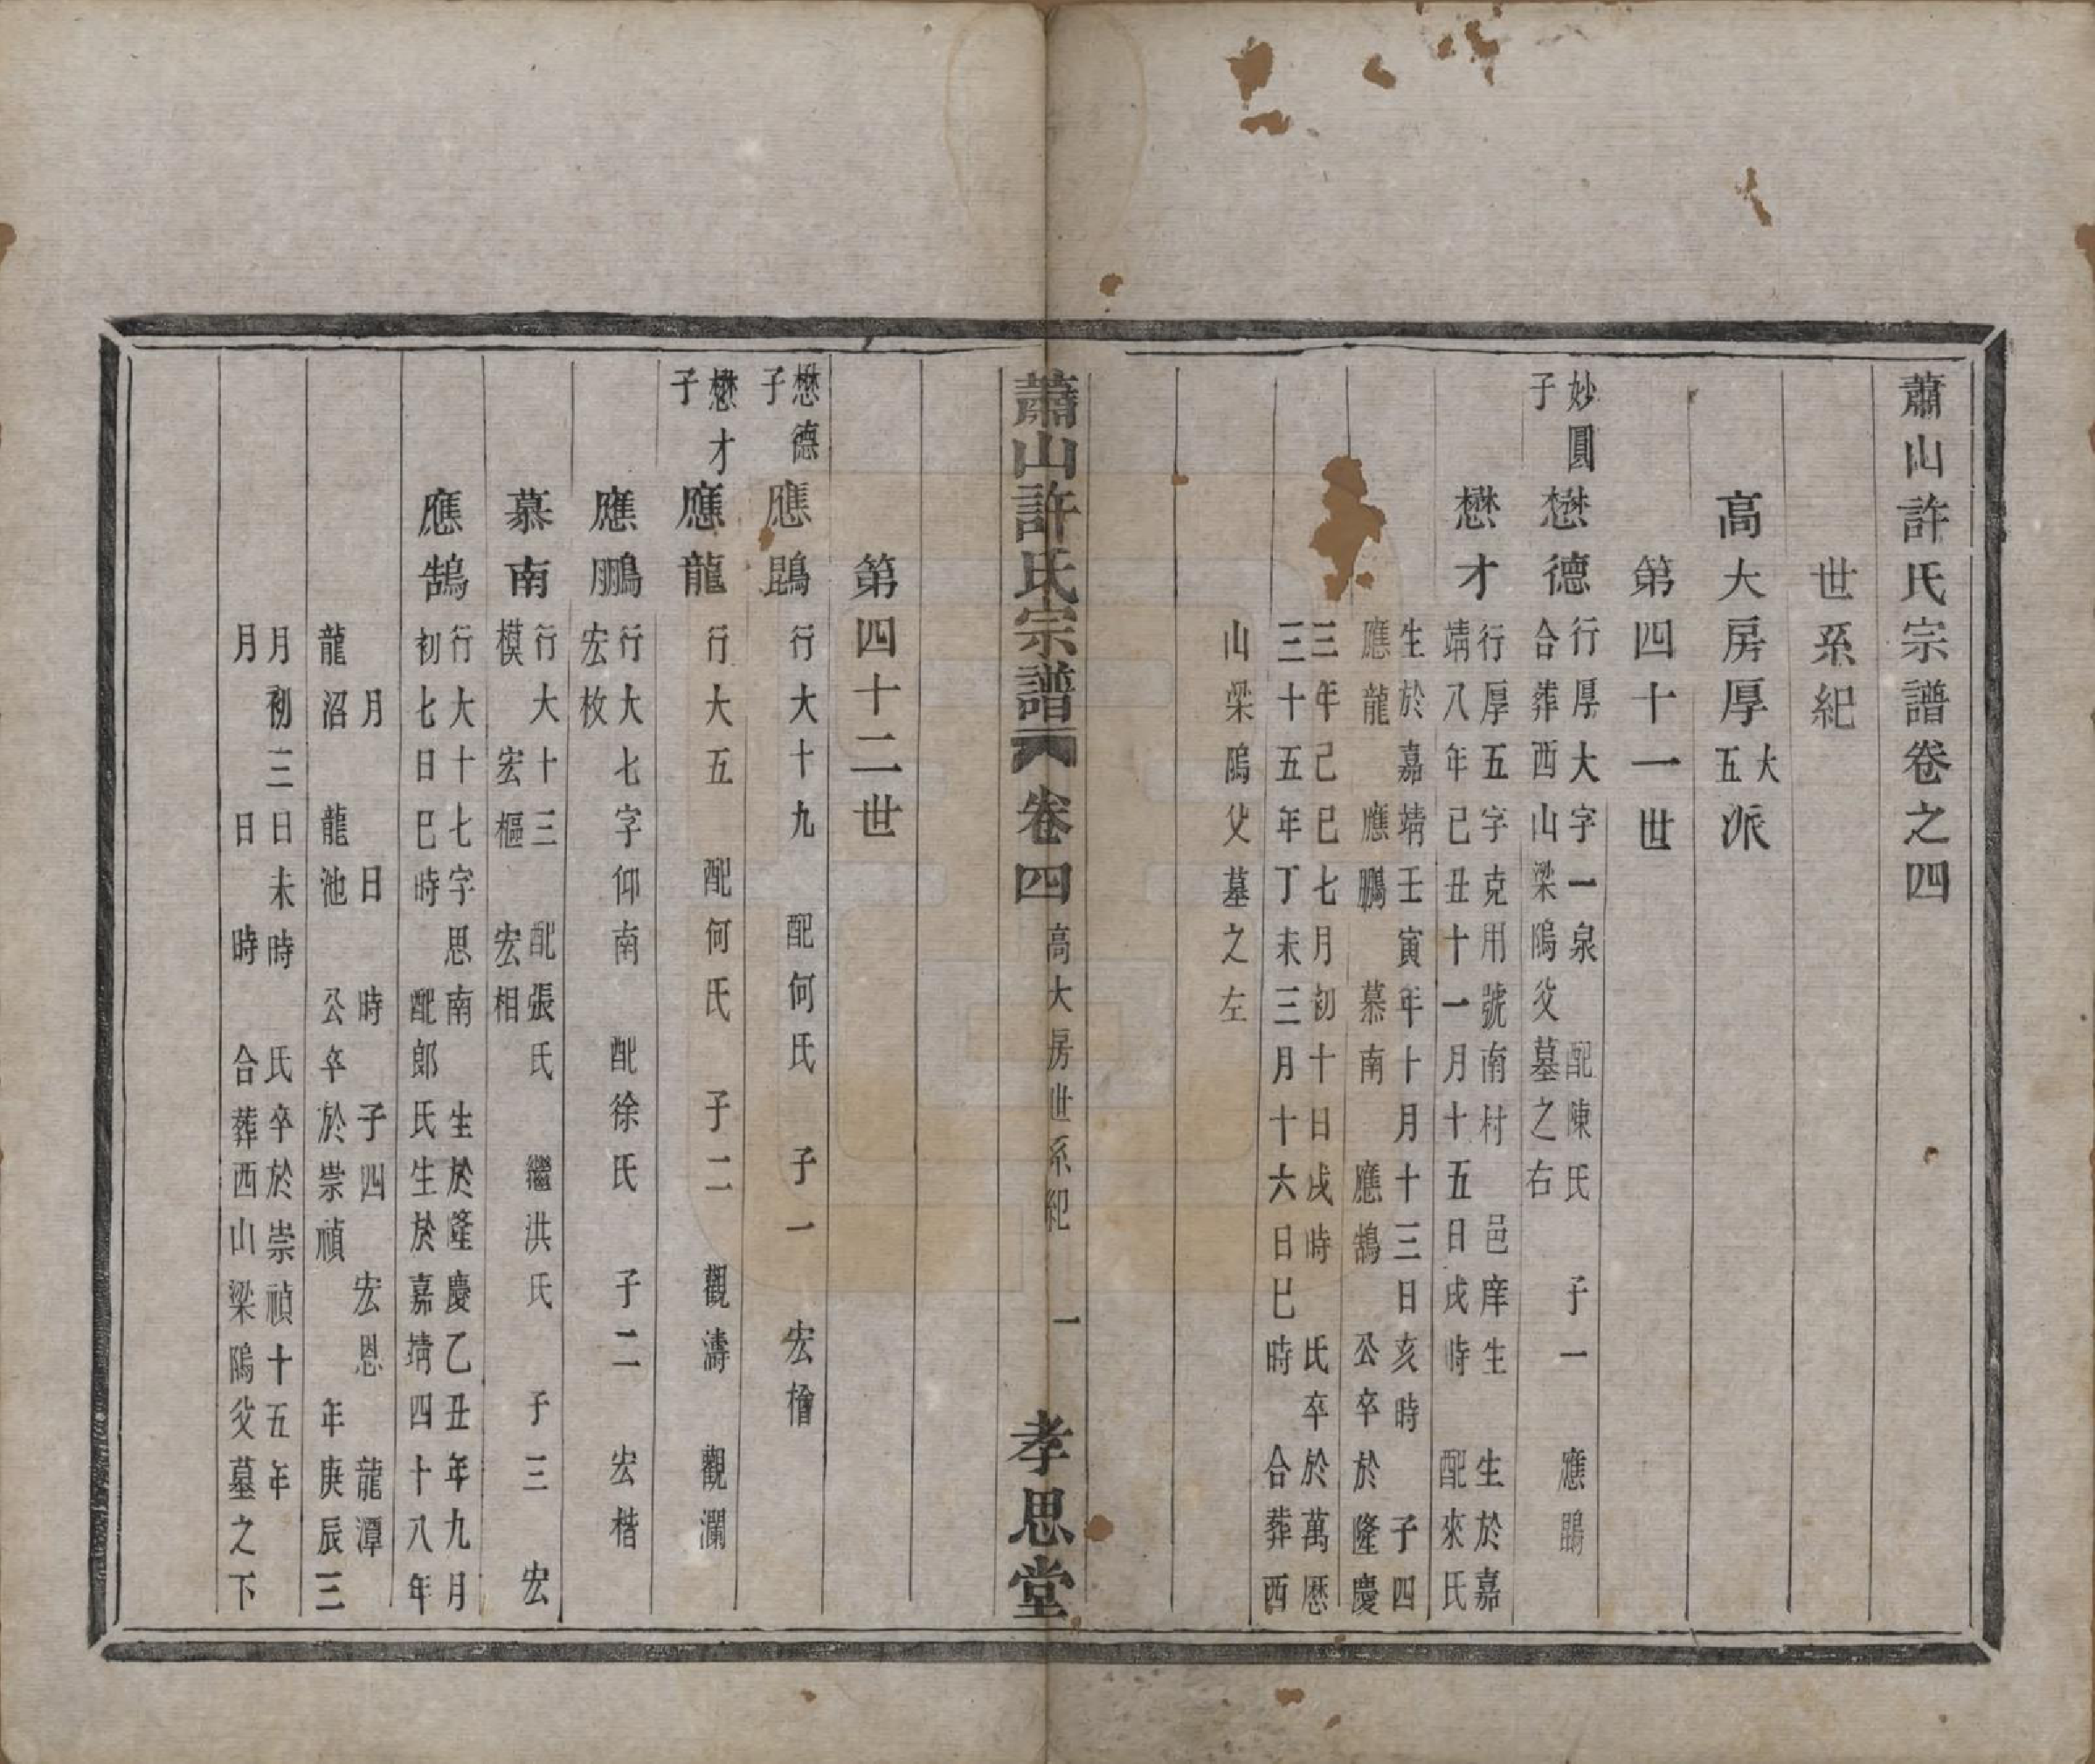 蕭山許氏宗譜卷之四
世系紀
高大房厚大五派
第四十一世
妙圓子
懋德
行厚大字一泉 配陳氏 子一 應鵾
合葬西山梁隖父墓之右
懋才
行厚五字克用號南村 邑庠生 生於嘉
靖八年己丑十一月十五日戌時 配來氏
生於嘉靖壬寅年十月十三日亥時 子四
應龍 應鵬 慕南 應鵠 公卒於隆慶
三年己巳七月初十日戌時 氏卒於萬厯
三十五年丁未三月十六日巳時 合葬西
山梁隖父墓之左
蕭山許氏宗譜 卷四 高大房世系紀 一 孝思堂
第四十二世
懋德子
應鵾
行大十九 配何氏 子一 宏檜
懋才子
應龍
行大五 配何氏 子二 觀濤 觀瀾
應鵬
行大七字仰南 配徐氏 子二 宏楷
宏枚
慕南
行大十三 配張氏 繼洪氏 子三 宏
模 宏樞 宏相
應鵠
行大十七字思南 生於隆慶乙丑年九月
初七日巳時 配郎氏生於嘉靖四十八年
月 日 時 子四 宏恩 龍潭
龍沼 龍池 公卒於崇禎 年庚辰三
月初三日未時 氏卒於崇禎十五年
月 日 時 合葬西山梁隖父墓之下